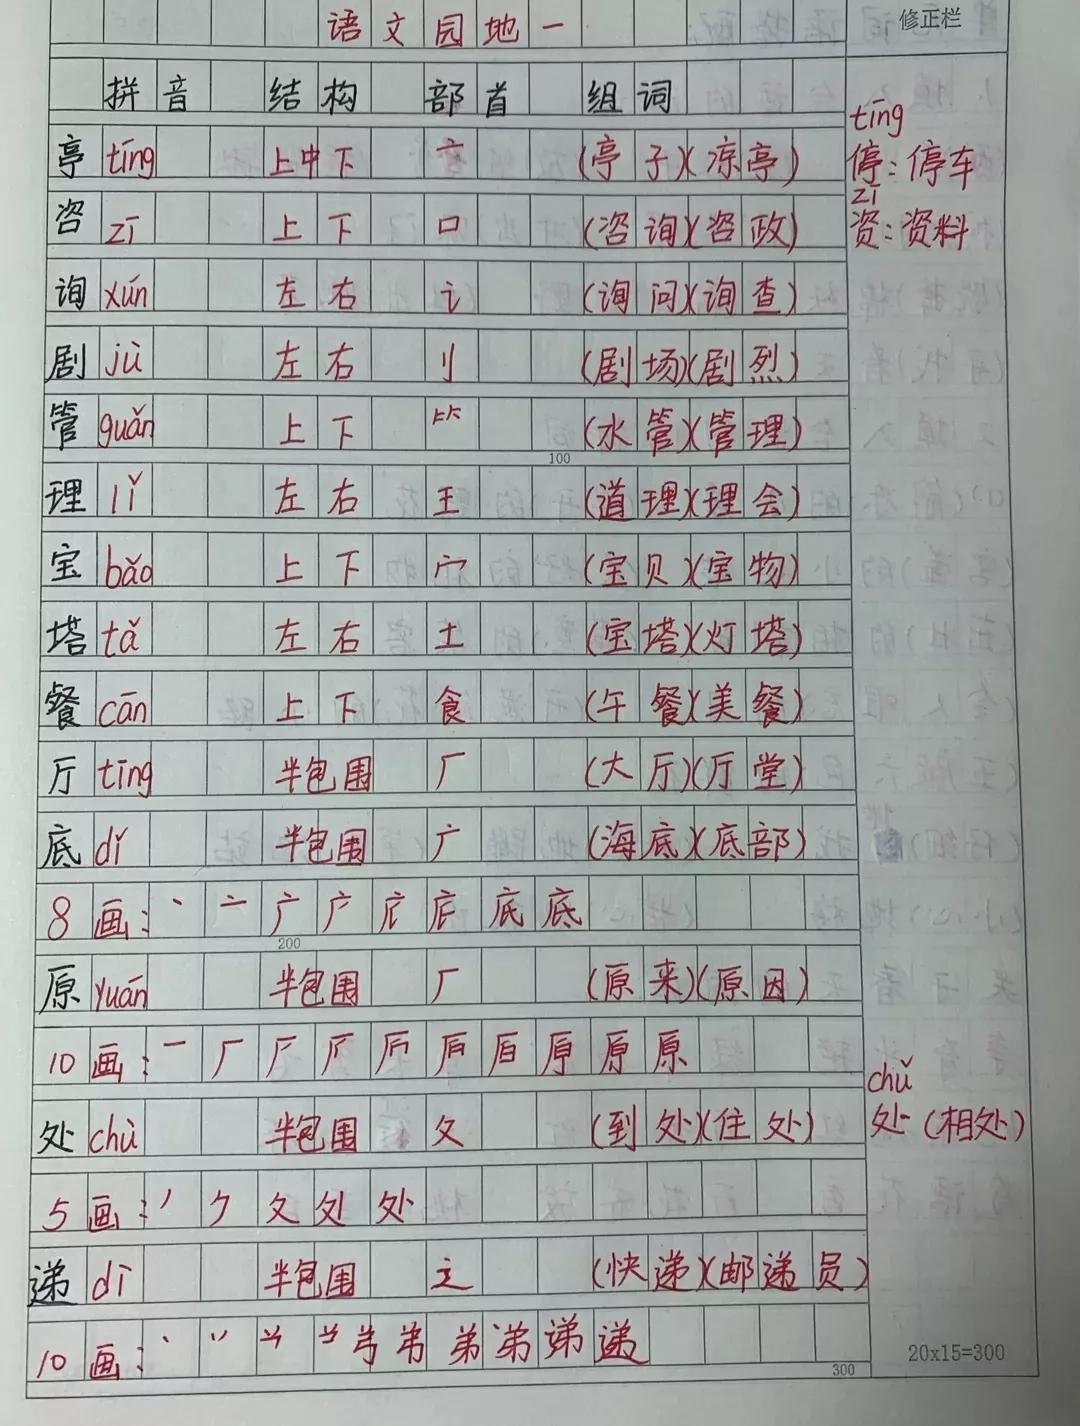 语文园地一
修正栏
拼音 结构 部首 组词
亭 tíng 上中下 亠 (亭子)(凉亭)
tíng
停:停车
咨 zī 上下 口 (咨询)(咨政)
zī
资:资料
询 xún 左右 讠 (询问)(询查)
剧 jù 左右 刂 (剧场)(剧烈)
管 guǎn 上下 ⺮ (水管)(管理)
100
理 lǐ 左右 王 (道理)(理会)
宝 bǎo 上下 宀 (宝贝)(宝物)
塔 tǎ 左右 土 (宝塔)(灯塔)
餐 cān 上下 食 (午餐)(美餐)
厅 tīng 半包围 厂 (大厅)(厅堂)
底 dǐ 半包围 广 (海底)(底部)
8画:丶 亠 广 广 庀 底 底 底
200
原 yuán 半包围 厂 (原来)(原因)
10画:一 厂 厂 厂 厉 盾 盾 原 原 原
处 chù 半包围 夂 (到处)(住处)
chǔ
处(相处)
5画:丿 ク 夂 处 处
递 dì 半包围 辶 (快递)(邮递员)
10画:丶 丷 䒑 弟 弟 弟 弟 递 递 递
300
20x15=300